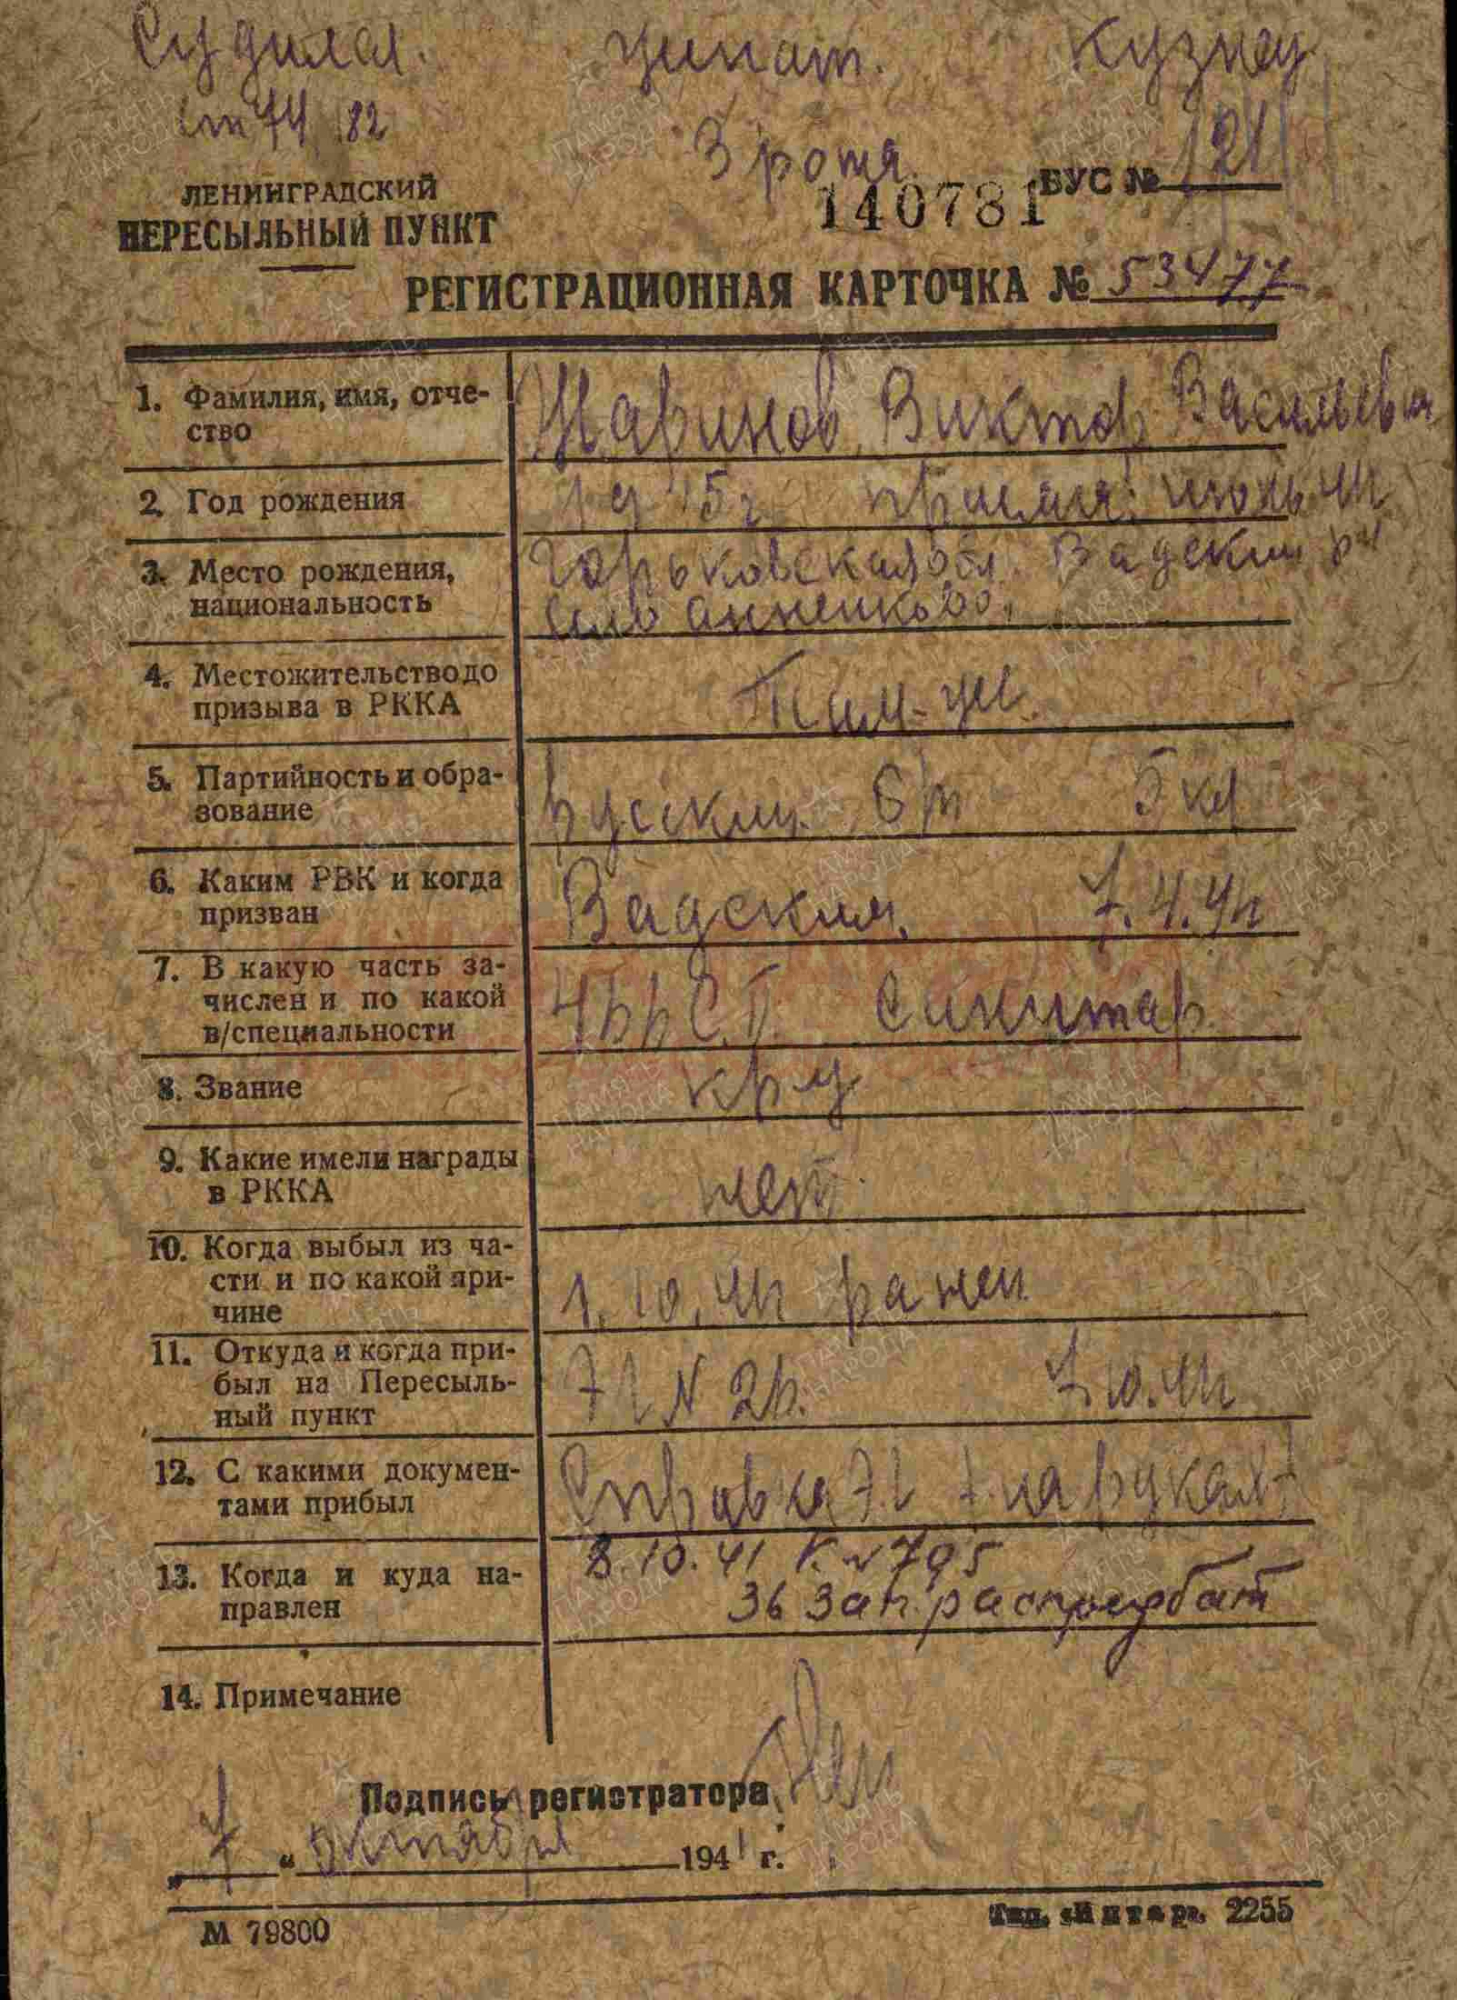 Судился. Кузнец
ст 74 182
3 рота
БУС № 121
ЛЕНИНГРАДСКИЙ
140781
ПЕРЕСЫЛЬНЫЙ ПУНКТ
РЕГИСТРАЦИОННАЯ КАРТОЧКА № 53477
1. Фамилия, имя, отче-
ство
Жаринов Виктор Васильевич
2. Год рождения
1915 г
3. Место рождения,
национальность
Горьковская обл Вадский рн
село Анненково.
4. Местожительстводо
призыва в РККА
5. Партийность и обра-
зование
Русский. б/п 5 кл
6. Каким РВК и когда
призван
Вадским. 7.4.41
7. В какую часть за-
числен и по какой
в/специальности
Санитар
8. Звание
кр-ц
9. Какие имели награды
в РККА
нет
10. Когда выбыл из ча-
сти и по какой при-
чине
1.10.41 ранен
11. Откуда и когда при-
был на Пересыль-
ный пункт
7.10.41
12. С какими докумен-
тами прибыл
Справка
13. Когда и куда на-
правлен
8.10.41 К. № 795
36 Зап. распред бат
14. Примечание
Подпись регистратора
„ 7 “ октября 1941 г.
М 79800
Тип. „Янтарь“ 2255
ПАМЯТЬ НАРОДА